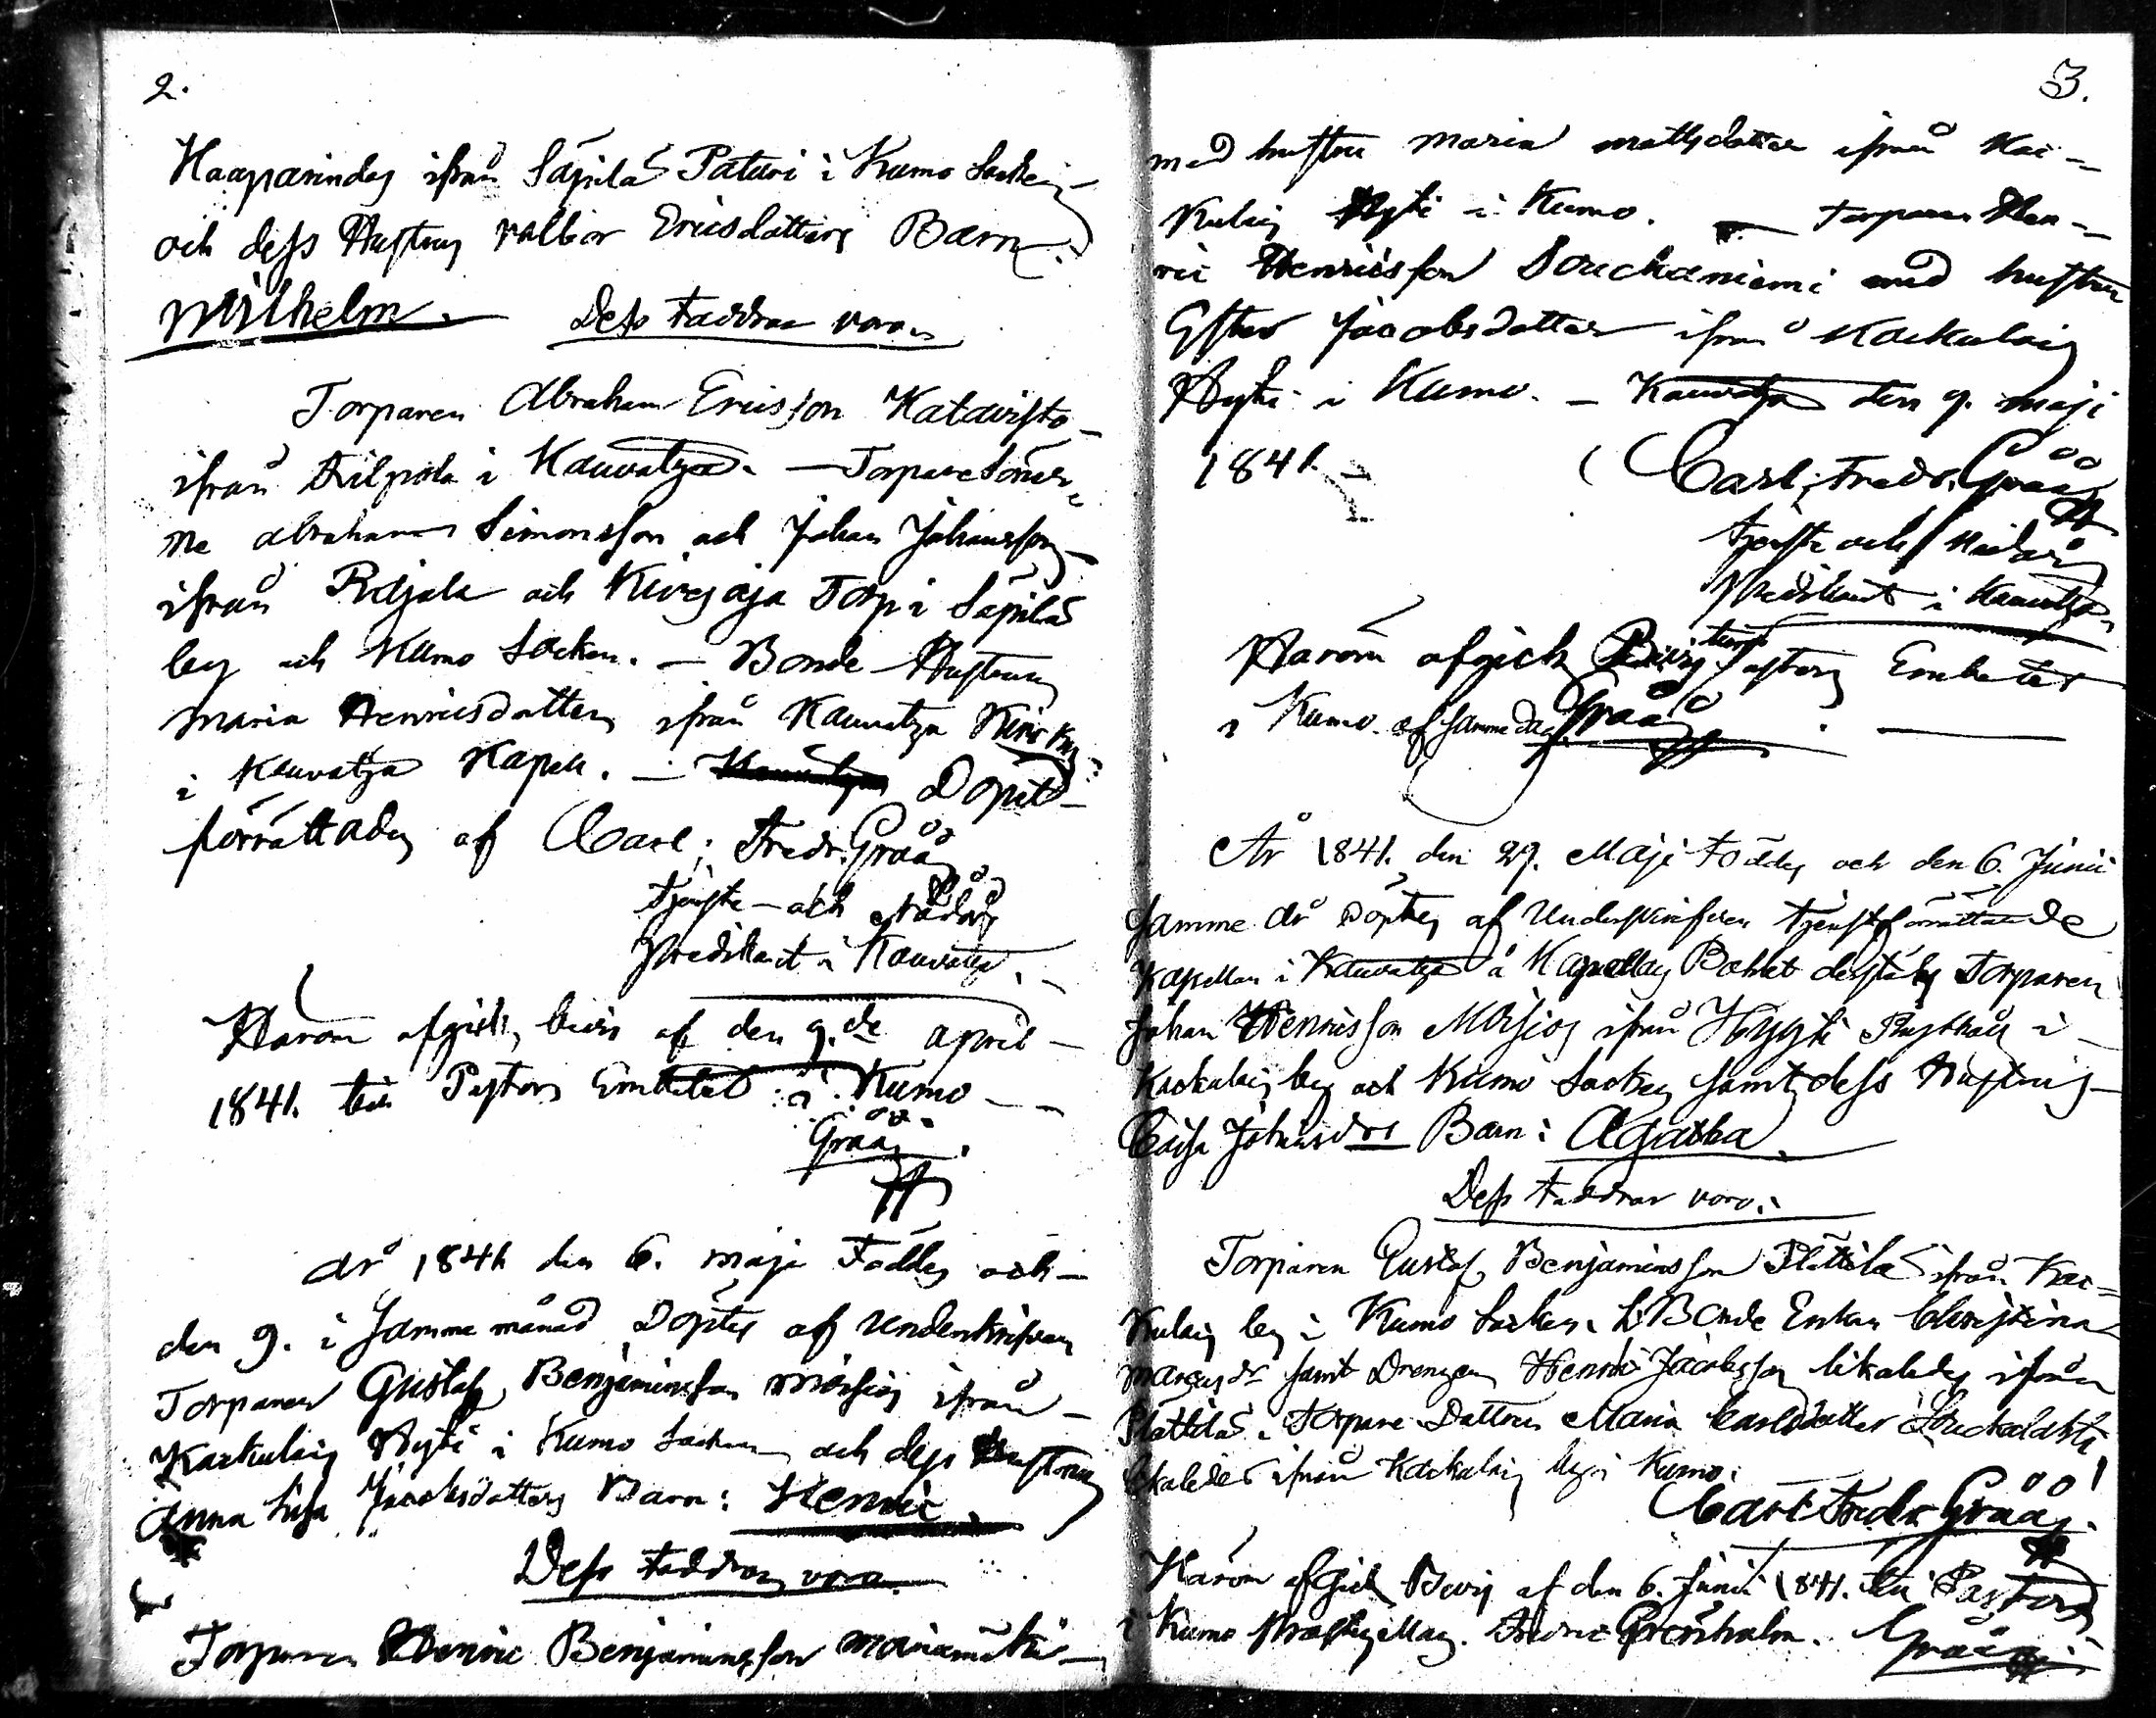 2.
Haaparindas ifrån Säpilä Patari i Kumo Socken
och dess Hustrus Valbor Ericsdotters Barn:
Wilhelm. Dess Faddrar voro.
Torparen Abraham Ericsson Katavisto
ifrån Kilpola i Kauvatza. — Torpare Söner-
ne Abraham Simonsson och Johan Johansson
ifrån Rajala och Kivioja Torp i Säpilä
by och Kumo Socken. — Bonde Hustrun
Maria Henricsdotter ifrån Kauvatza
i Kauvatza Kapell. — Dopet
förrättades af Carl. Fredr. Gråå
Tjenste- och Nådårs
Predikant i Kauvatza.
Härom afgick bevis af den 9.de April
1841. till Pastors Embetet i Kumo
Gråå.
År 1841 den 6. Maji Föddes och
den 9. i Samma månad Döptes af Undertecknad
Torparen Gustaf Benjaminsson Moisio ifrån
Kackulais Hyti i Kumo Socken och dess Hustrus
Anna Lisa Jacobsdotters Barn: Henric
Dess Faddrar voro.
Torparen Henric Benjaminsson
3.
med hustru Maria Mattsdotter ifrån Kac-
kulais Hyti i Kumo. — Torparen Hen-
ric Henricsson Souckaniemi med hustru
Ester Jacobsdotter ifrån Kackulais
Hyti i Kumo. — Kauvatza den 9. Maji
1841. Carl. Fredr. Gråå
Tjenste och Nådårs
Predikant i Kauvatza
Härom afgick Bevis till Pastors Embetet
i Kumo af samma dag. Gråå
År 1841. den 29. Maji Föddes och den 6. Junii
Samme år Döptes af Underskrifven Tjenstförrättande
Kapellan i Kauvatza å Kapellans Bohlet derstädes Torparen
Johan Henricsson Moisios ifrån Hyyti Rusthåll i
Kackulais by och Kumo Socken samt dess Hustrus
Caisa Johansdrs Barn: Agatha.
Dess Faddrar voro:
Torparen Gustaf Benjaminsson Plättilä ifrån Kac-
kulais by i Kumo Socken. Bonde Enkan Christina
Marcusdr samt Drengen Henric Jacobsson likaledes ifrån
Plättilä. Torpare Dottren Maria Carlsdotter
likaledes ifrån Kackulais by i Kumo.
Carl Fredr. Gråå.
Härom afgick Bevis af den 6. Junii 1841. till Pastors
i Kumo Gråå